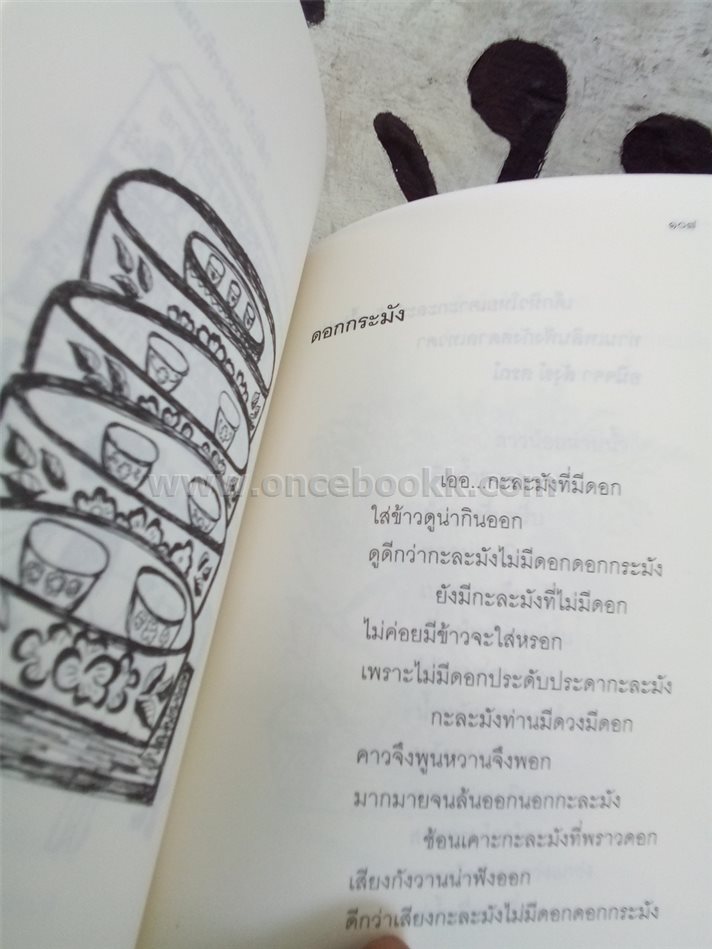 ๑๐๗
ดอกกระมัง
เออ...กะละมังที่มีดอก
ใส่ข้าวดูน่ากินออก
ดูดีกว่ากะละมังไม่มีดอกดอกกระมัง
ยังมีกะละมังที่ไม่มีดอก
ไม่ค่อยมีข้าวจะใส่หรอก
เพราะไม่มีดอกประดับประดากะละมัง
กะละมังท่านมีดวงมีดอก
คาวจึงพูนหวานจึงพอก
มากมายจนล้นออกนอกกะละมัง
ช้อนเคาะกะละมังที่พราวดอก
เสียงกังวานน่าฟังออก
ดีกว่าเสียงกะละมังไม่มีดอกดอกกระมัง
www.oncebookk.com